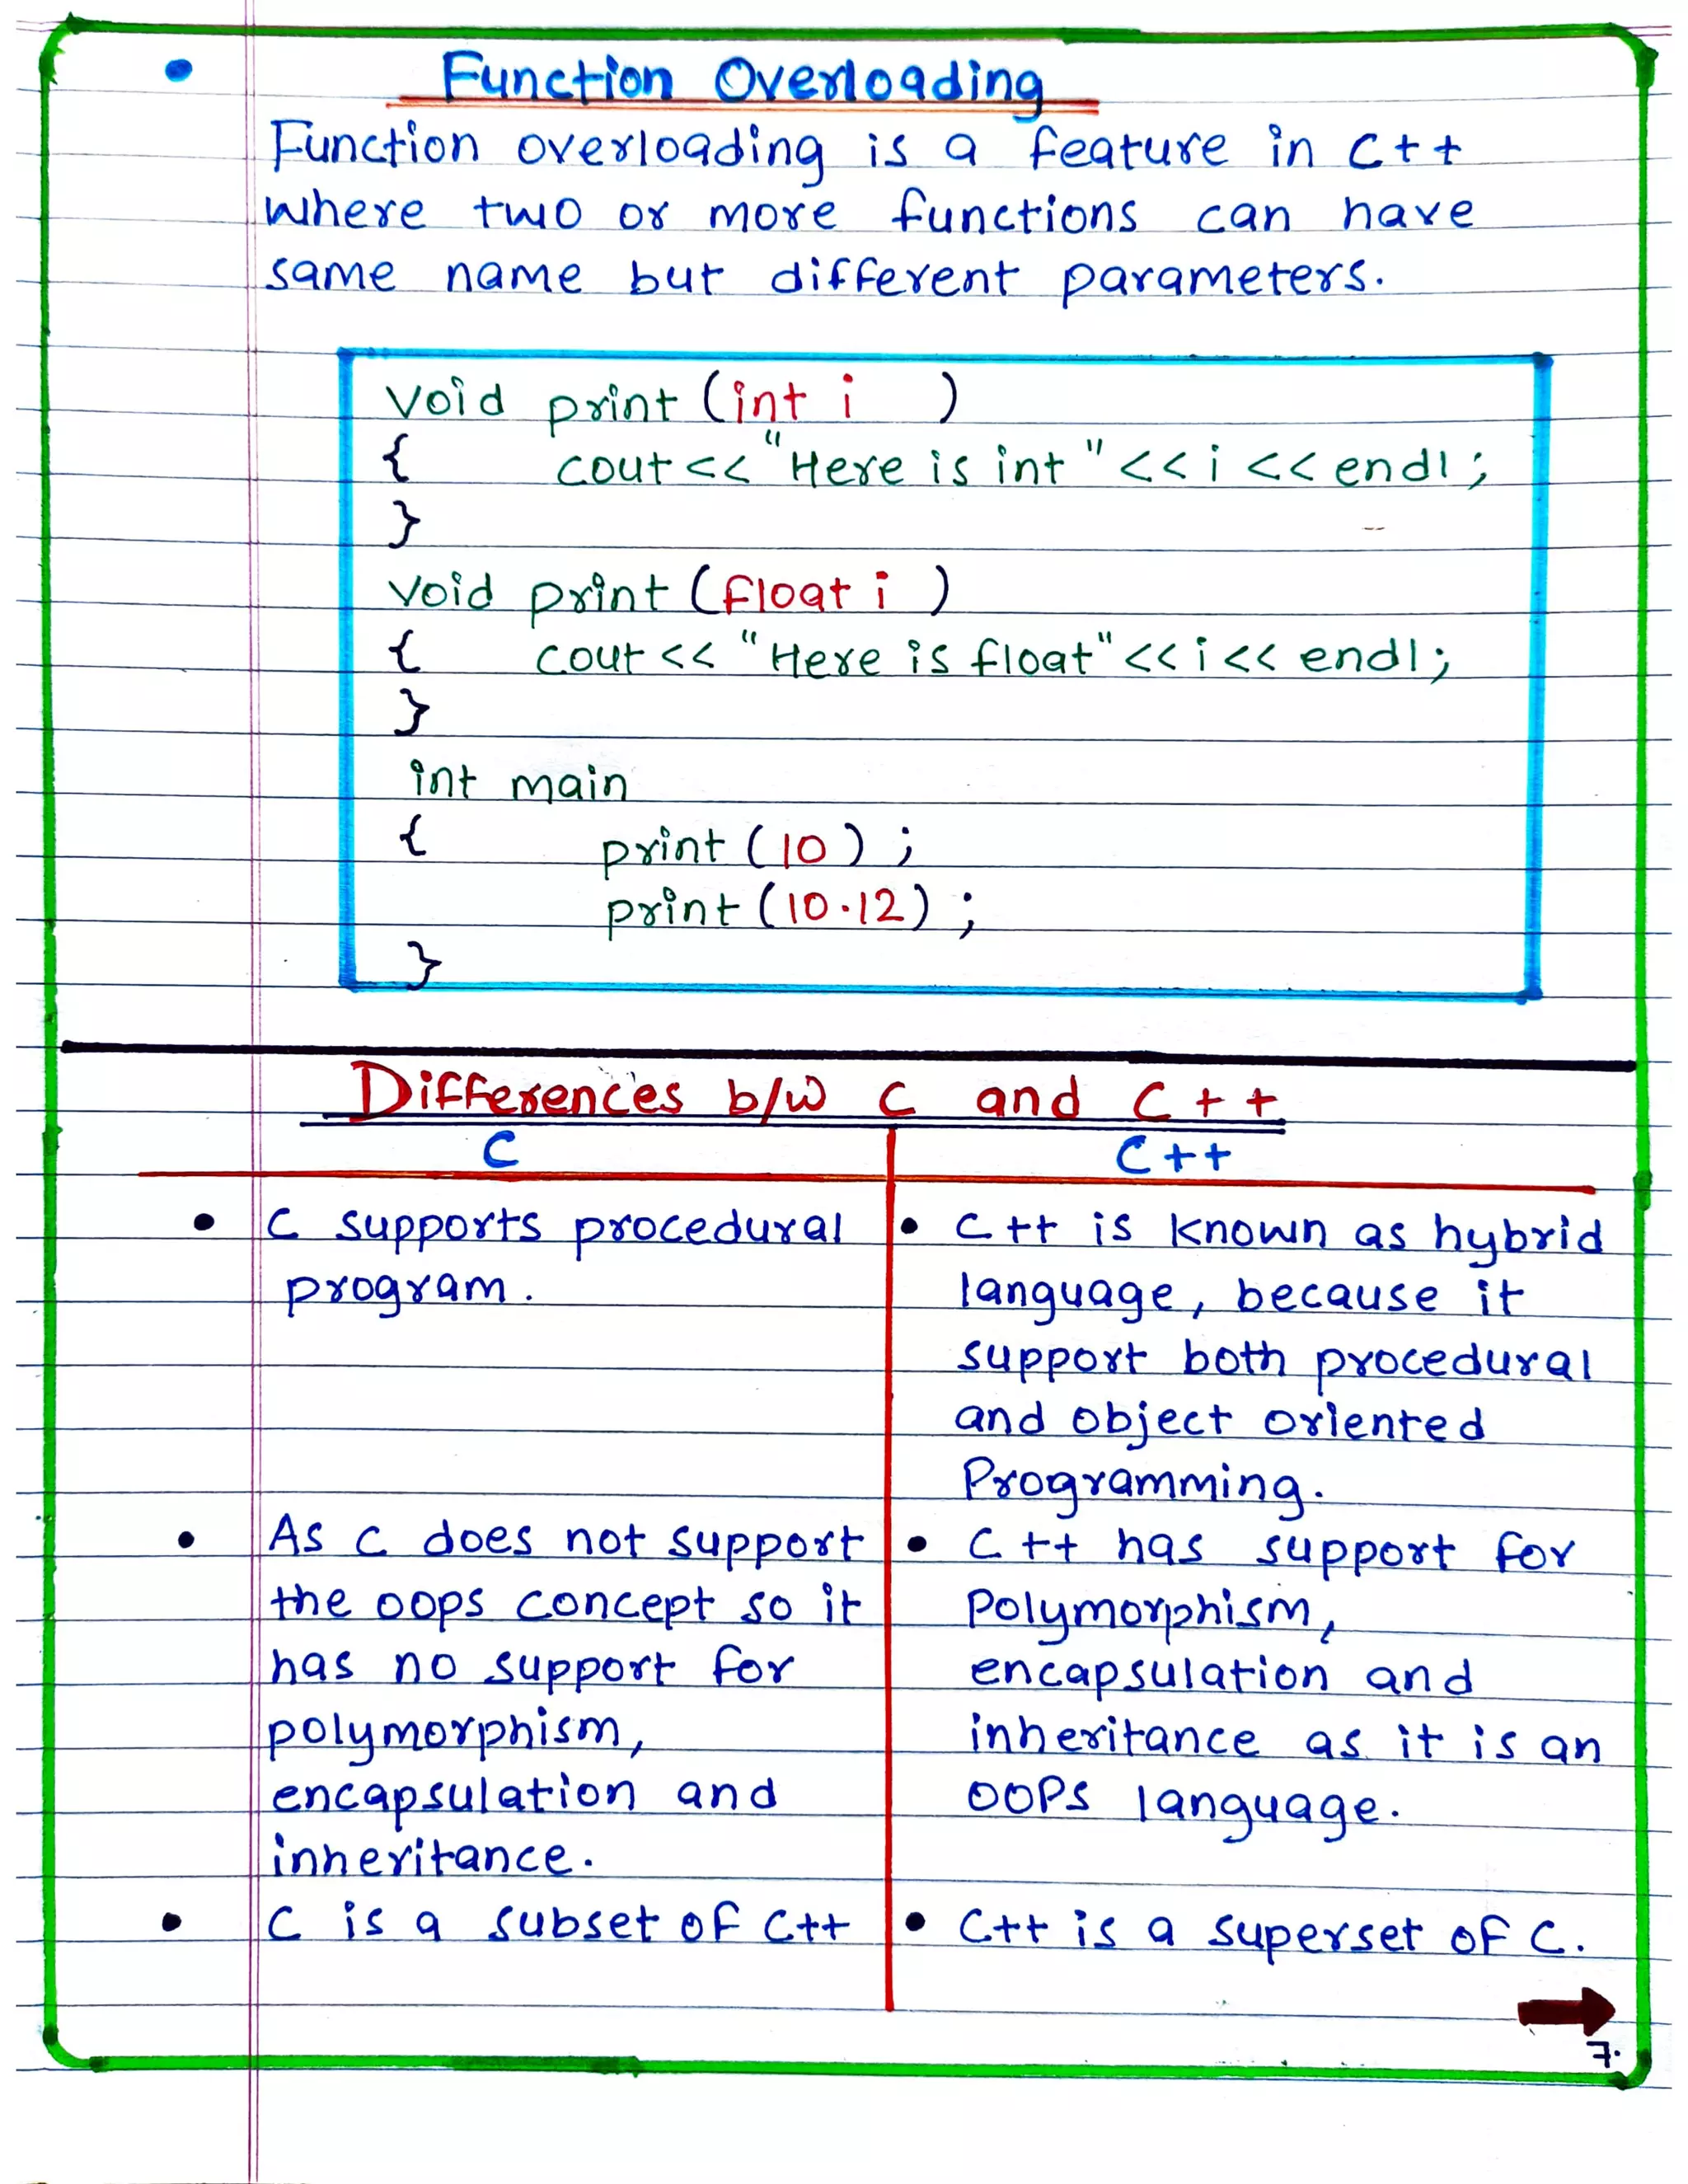 • Function Overloading
Function overloading is a feature in C++
where two or more functions can have
same name but different parameters.
void print (int i )
{ cout << "Here is int " << i << endl ;
}
void print (float i )
{ cout << "Here is float" << i << endl;
}
int main
{ print (10) ;
print (10.12) ;
}
Differences b/w C and C++
C
• C supports procedural
program.
• As C does not support
the oops concept so it
has no support for
polymorphism,
encapsulation and
inheritance.
• C is a subset of C++
C++
• C++ is known as hybrid
language, because it
support both procedural
and object oriented
Programming.
• C++ has support for
Polymorphism,
encapsulation and
inheritance as it is an
OOPS language.
• C++ is a superset of C.
7.